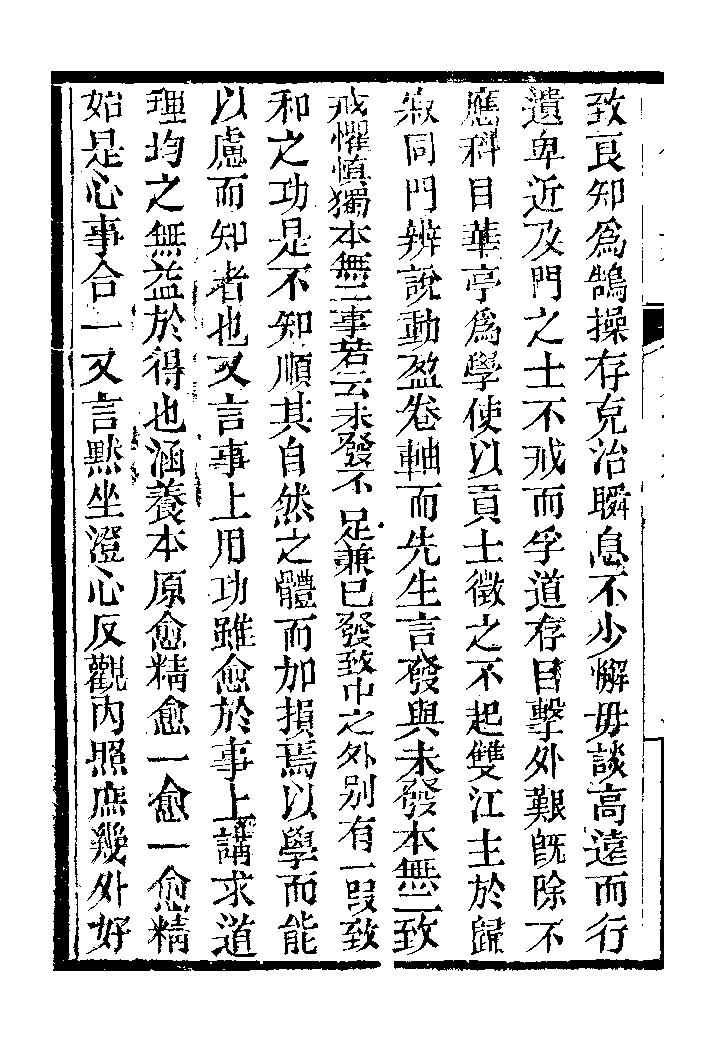 致良知為鵠操存克治瞬息不少懈毋談高遠而行
遺卑近及門之士不戒而孚道存目擊外艱既除不
應科目華亭為學使以貢士徵之不起雙江主於歸
寂同門辨說動盈卷軸而先生言發與未發本無二致
戒懼慎獨本無二事若云未發不足兼已發致中之外別有一段致
和之功是不知順其自然之體而加損焉以學而能
以慮而知者也又言事上用功雖愈於事上講求道
理均之無益於得也涵養本原愈精愈一愈一愈精
始是心事合一又言默坐澄心反觀內照庶幾外好